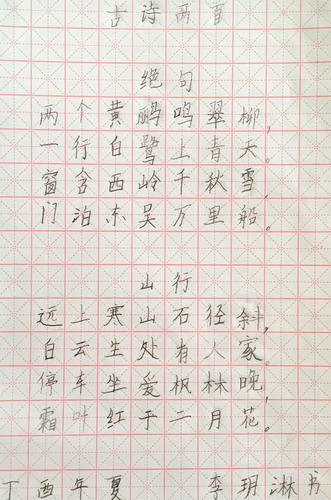 古诗两首
绝句
两个黄鹂鸣翠柳,
一行白鹭上青天。
窗含西岭千秋雪,
门泊东吴万里船。
山行
远上寒山石径斜,
白云生处有人家。
停车坐爱枫林晚,
霜叶红于二月花。
丁酉年夏 李玥淋书